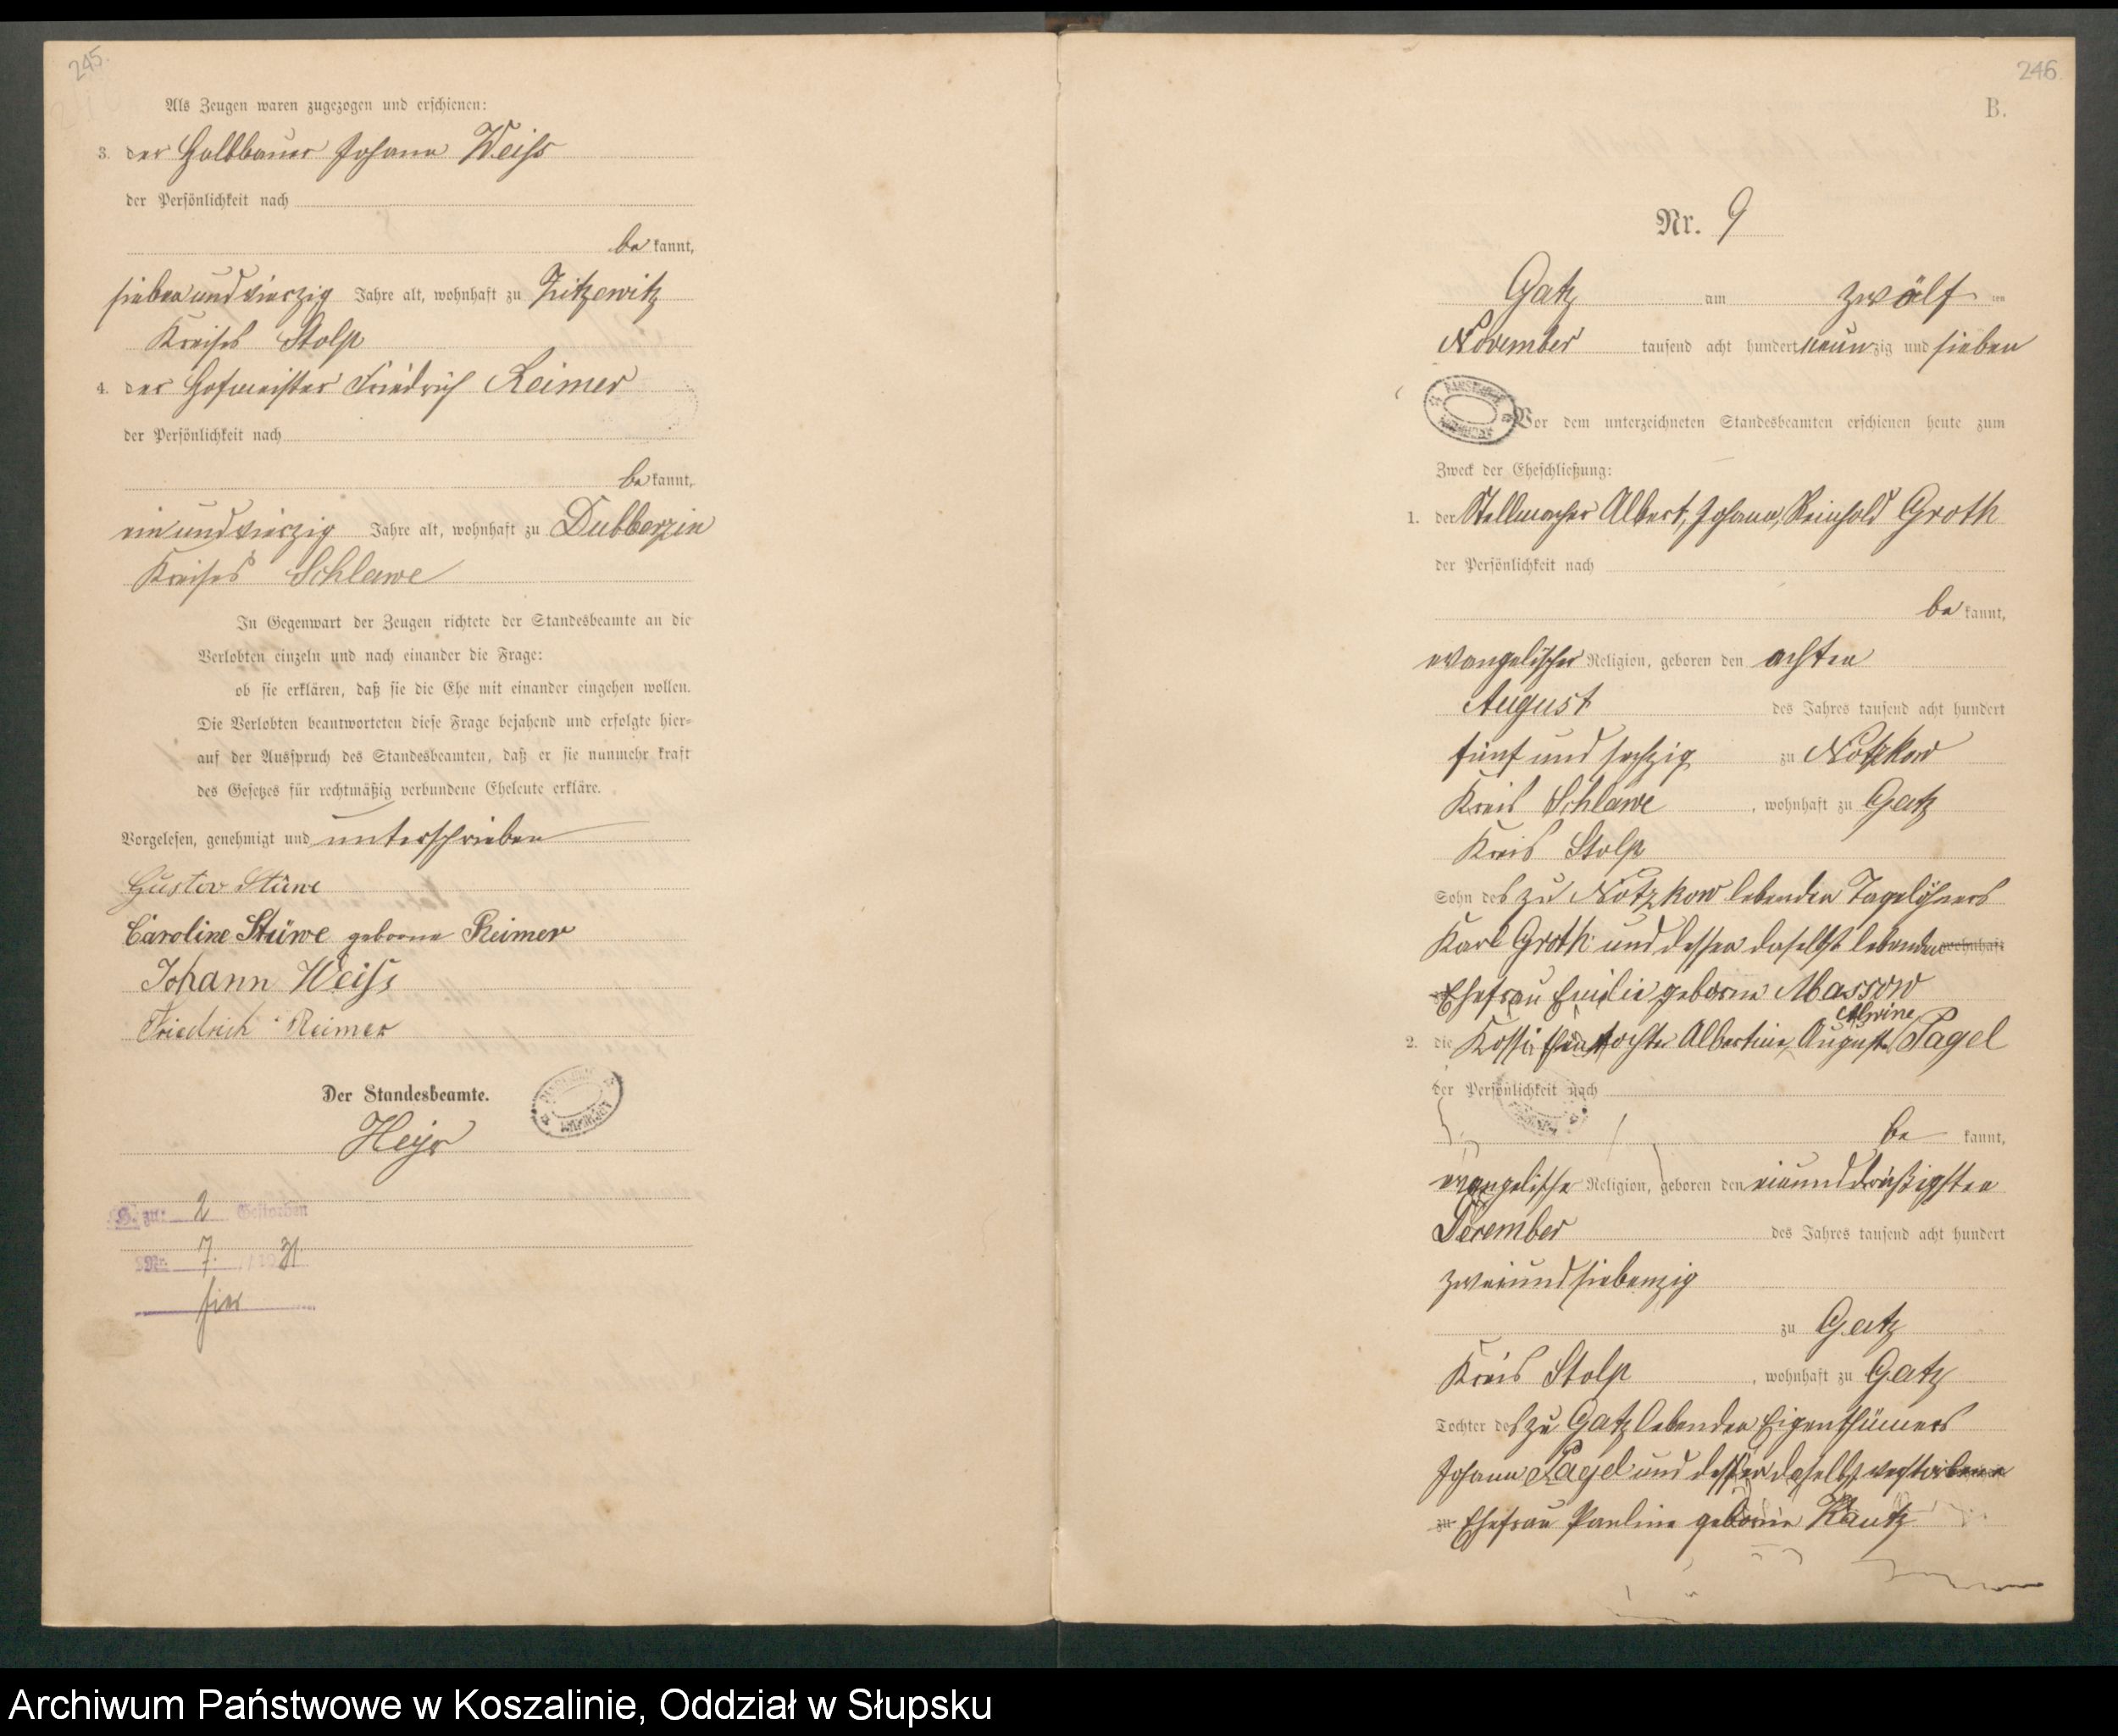 245.
Als Zeugen waren zugezogen und erschienen:
3. der Halbbauer Johann Weiss
der Persönlichkeit nach
be kannt,
siebenundvierzig Jahre alt, wohnhaft zu Zitzewitz
Kreises Stolp
4. der Hofmeister Friedrich Reimer
der Persönlichkeit nach
be kannt,
einundvierzig Jahre alt, wohnhaft zu Dubberzin
Kreises Schlawe
In Gegenwart der Zeugen richtete der Standesbeamte an die
Verlobten einzeln und nach einander die Frage:
ob sie erklären, daß sie die Ehe mit einander eingehen wollen.
Die Verlobten beantworteten diese Frage bejahend und erfolgte hier-
auf der Ausspruch des Standesbeamten, daß er sie nunmehr kraft
des Gesetzes für rechtmäßig verbundene Eheleute erkläre.
Vorgelesen, genehmigt und unterschrieben
Gustav Stüwe
Caroline Stüwe geborne Reimer
Johann Weiss
Friedrich Reimer
Der Standesbeamte.
Heyr
H. zu: 2 Gestorben
Nr. 7. /1931
246
B.
Nr. 9
Gatz am zwölf ten
November tausend acht hundert neunzig und sieben
Vor dem unterzeichneten Standesbeamten erschienen heute zum
Zweck der Eheschließung:
1. der Stellmacher Albert, Johann, Reinhold Groth
der Persönlichkeit nach
be kannt,
evangelischer Religion, geboren den achten
August des Jahres tausend acht hundert
fünf und sechzig zu Nötzkow
Kreis Schlawe, wohnhaft zu Gatz
Kreis Stolp
Sohn des zu Nötzkow lebenden Tagelöhners
Karl Groth und dessen daselbst lebenden wohnhaft
Ehefrau Emilie geborne Massow
Alwine
2. die Kossäthentochter Albertine, Auguste Pagel
der Persönlichkeit nach
be kannt,
evangelische Religion, geboren den einunddreißigsten
December des Jahres tausend acht hundert
zweiundsiebenzig
zu Gatz
Kreis Stolp, wohnhaft zu Gatz
Tochter des zu Gatz lebenden Eigenthümers
Johann Pagel und dessen daselbst verstorbene
zu Ehefrau Pauline geborne Kautz
Archiwum Państwowe w Koszalinie, Oddział w Słupsku